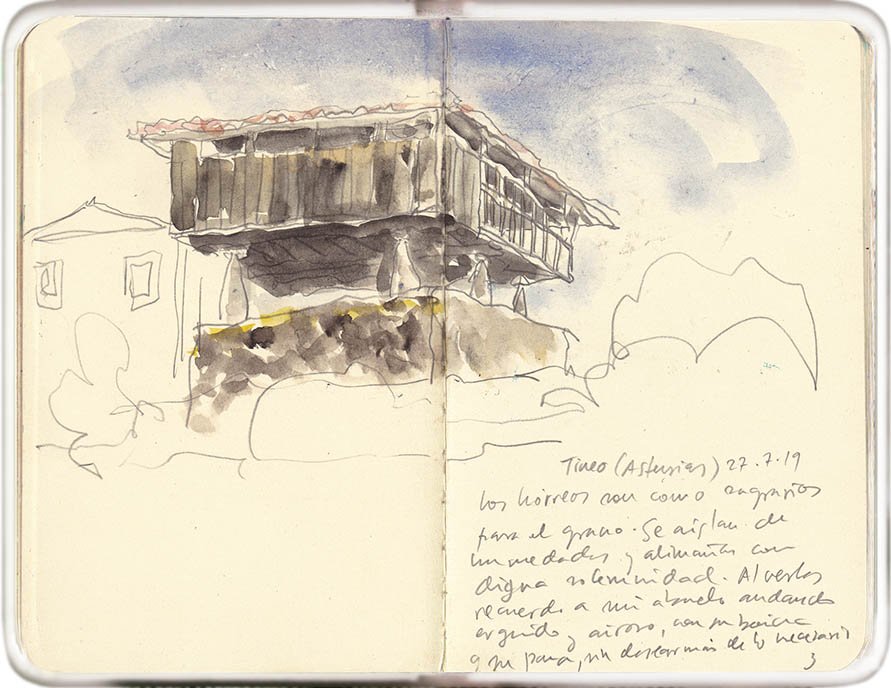 Tineo (Asturias) 27.7.19
Los hórreos son como sagrarios
para el grano. Se aislan de
humedades y alimañas con
digna solemnidad. Al verlos
recuerdo a mi abuelo andando
erguido y airoso, con su boina
y su pana, sin desear más de lo necesario
3